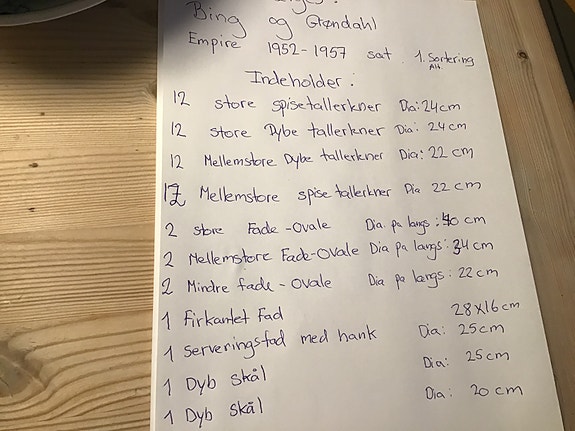 Bing og Grøndahl
Empire 1952-1957 sat 1. Sortering
Alt.
Indeholder:
12 store spisetallerkner Dia: 24cm
12 store Dybe tallerkner Dia: 24 cm
12 Mellemstore Dybe tallerkner Dia: 22 cm
12 Mellemstore spisetallerkner Dia 22 cm
2 store Fade-Ovale Dia. pa langs: 40 cm
2 Mellemstore Fade-Ovale Dia pa langs: 34cm
2 Mindre fade-Ovale Dia pa langs: 22cm
1 Firkantet Fad 28x16cm
1 Serveringsfad med hank Dia: 25cm
1 Dyb Skål Dia: 25cm
1 Dyb Skål Dia: 20 cm